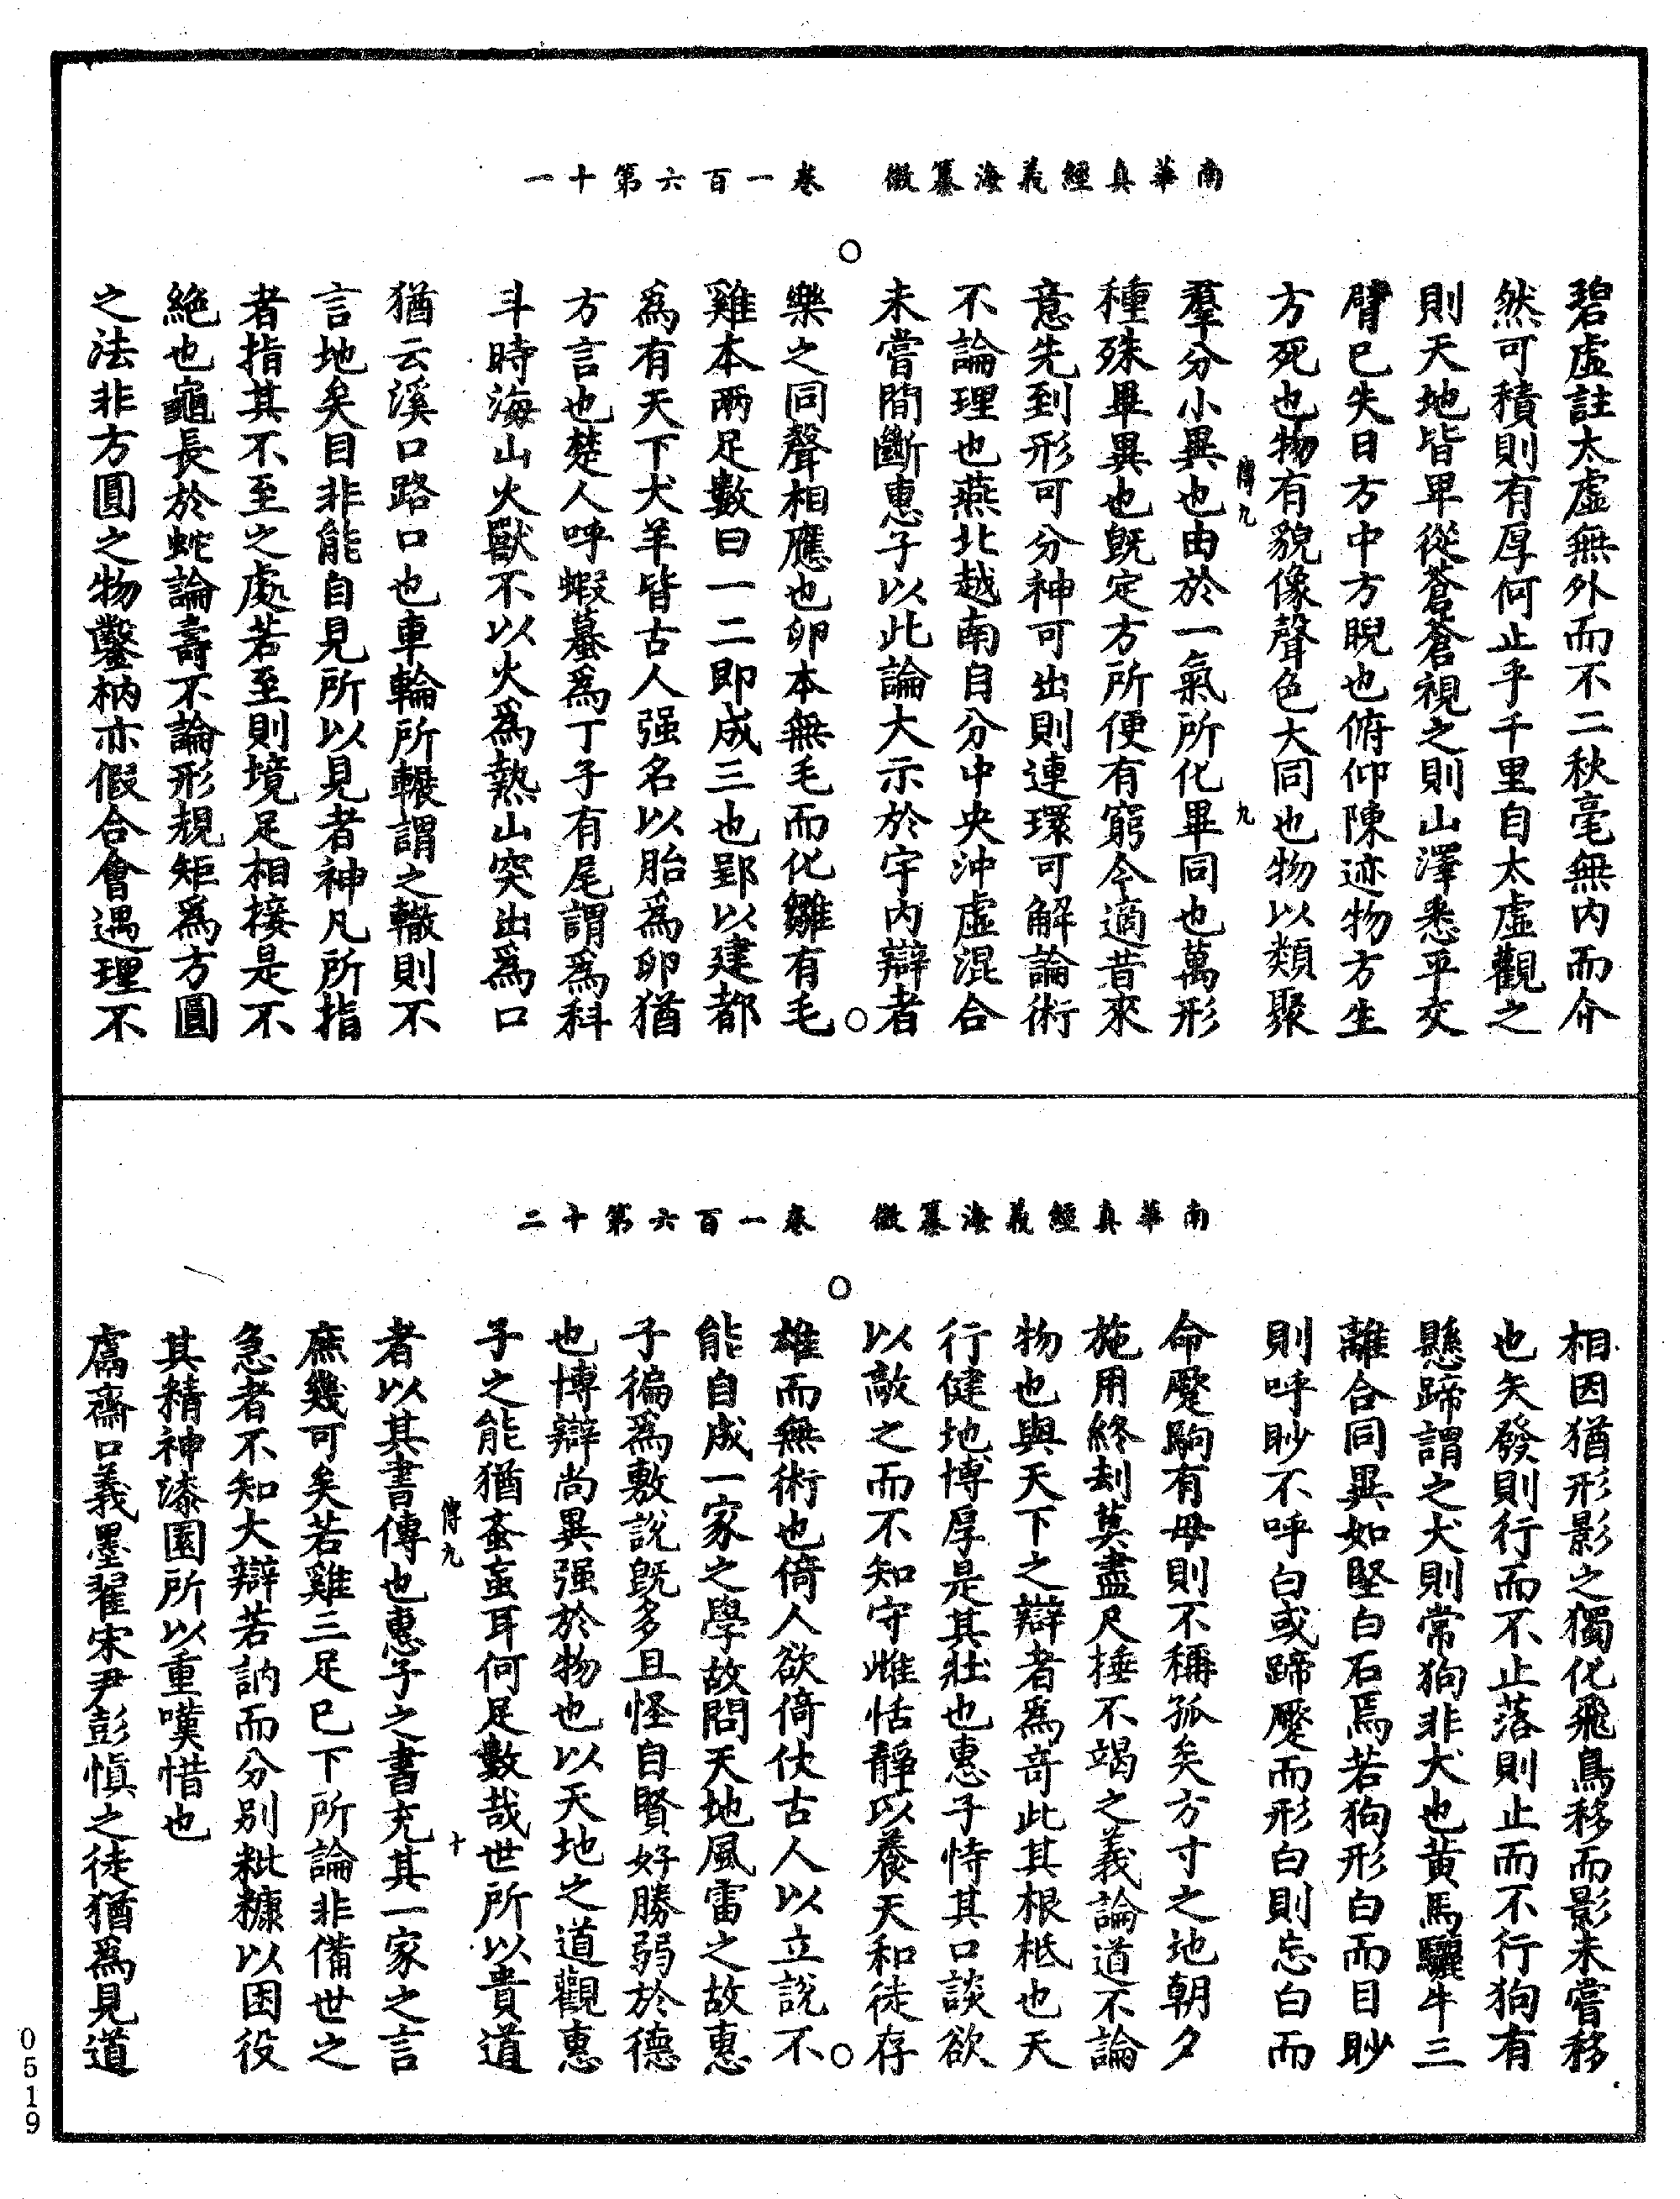 南華真經義海纂微　卷一百六第十一
碧虛註太虛無外而不二秋毫無内而介
然可積則有厚何止乎千里自太虛觀之
則天地皆卑從蒼蒼視之則山澤悉平交
臂已失日方中方睨也俯仰陳迹物方生
方死也物有貌像聲色大同也物以類聚
傳九　九
羣分小異也由於一氣所化畢同也萬形
種殊畢異也既定方所便有窮今適昔來
意先到形可分神可出則連環可解論術
不論理也燕北越南自分中央沖虛混合
未嘗間斷惠子以此論大示於宇内辯者
樂之同聲相應也卵本無毛而化雛有毛
雞本兩足數曰一二即成三也郢以建都
爲有天下犬羊皆古人强名以胎爲卵猶
方言也楚人呼蝦蟇爲丁子有尾謂爲科
斗時海山火獸不以火爲熱山突出爲口
猶云溪口路口也車輪所輾謂之轍則不
言地矣目非能自見所以見者神凡所指
者指其不至之處若至則境足相接是不
絶也龜長於蛇論壽不論形規矩爲方圓
之法非方圓之物鑿枘亦假合會遇理不
南華真經義海纂微　卷一百六第十二
相因猶形影之獨化飛鳥移而影未嘗移
也矢發則行而不止落則止而不行狗有
懸蹄謂之犬則常狗非犬也黄馬驪牛三
離合同異如堅白石焉若狗形白而目眇
則呼眇不呼白或蹄蹷而形白則忘白而
命蹷駒有母則不稱孤矣方寸之地朝夕
施用終刦莫盡尺捶不竭之義論道不論
物也與天下之辯者爲奇此其根柢也天
行健地博厚是其壯也惠子恃其口談欲
以敵之而不知守雌恬靜以養天和徒存
雄而無術也倚人欲倚仗古人以立說不
能自成一家之學故問天地風雷之故惠
子徧爲敷說既多且怪自賢好勝弱於德
也博辯尚異强於物也以天地之道觀惠
子之能猶蚉䖟耳何足數哉世所以貴道
傳九　十
者以其書傳也惠子之書充其一家之言
庶幾可矣若雞三足已下所論非備世之
急者不知大辯若訥而分别粃糠以困役
其精神漆園所以重嘆惜也
鬳齋口義墨翟宋尹彭愼之徒猶爲見道
0519